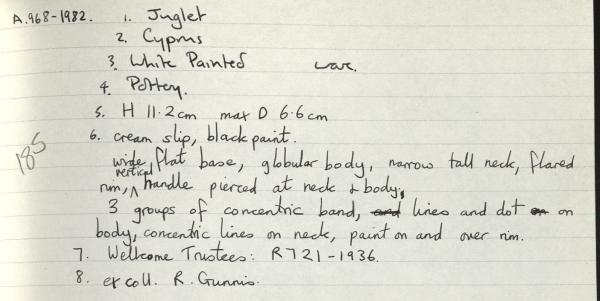 A.968-1982. 1. Juglet
2. Cyprus
3. White Painted ware.
4. Pottery.
5. H 11.2cm max D 6.6cm
6. cream slip, black paint.
185
wide, flat base, globular body, narrow tall neck, flared
rim, vertical handle pierced at neck & body,
3 groups of concentric band, and lines and dot on on
body, concentric lines on neck, paint on and over rim.
7. Wellcome Trustees: R721-1936.
8. ex coll. R. Gunnis.